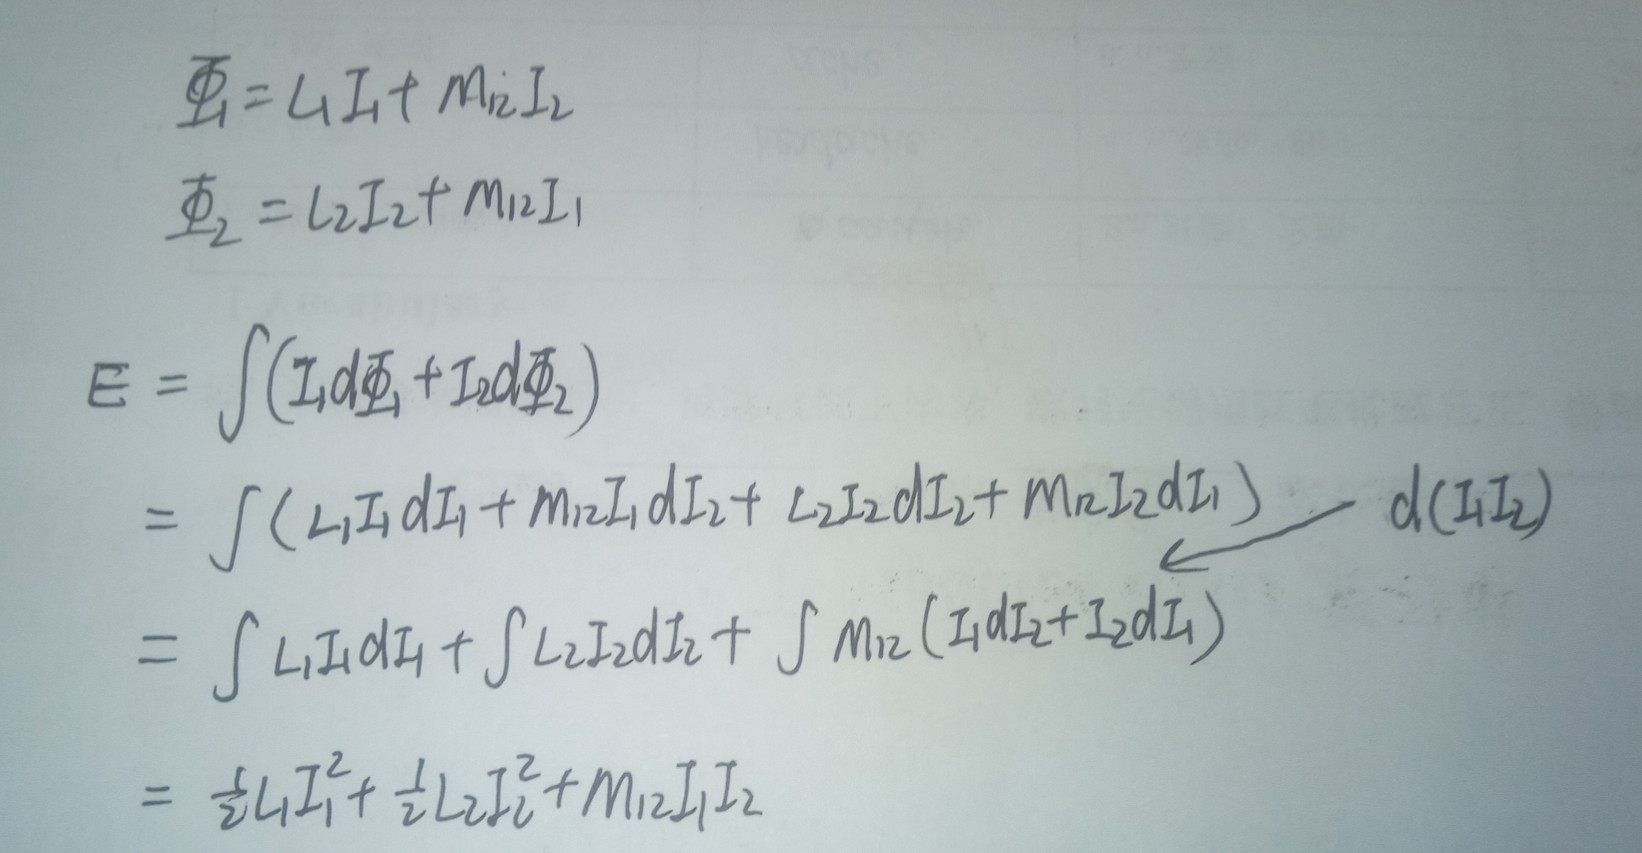 Φ₁ = L₁I₁ + M₁₂I₂
Φ₂ = L₂I₂ + M₁₂I₁
E = ∫(I₁dΦ₁ + I₂dΦ₂)
= ∫(L₁I₁dI₁ + M₁₂I₁dI₂ + L₂I₂dI₂ + M₁₂I₂dI₁) d(I₁I₂)
= ∫L₁I₁dI₁ + ∫L₂I₂dI₂ + ∫M₁₂(I₁dI₂ + I₂dI₁)
= ½L₁I₁² + ½L₂I₂² + M₁₂I₁I₂